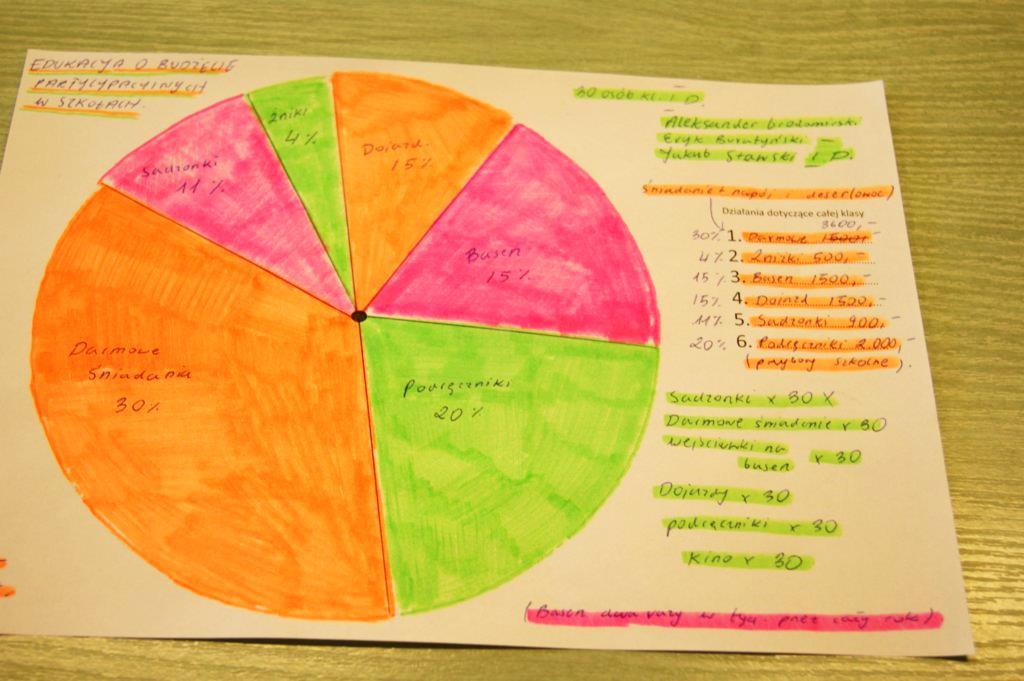 EDUKACJA O BUDŻECIE
PARTYCYPACYJNYCH
W SZKOŁACH.
Zniki
4%
Sadzonki
11%
Dojazd.
15%
Basen
15%
Darmowe
Śniadania
30%
Podręczniki
20%
30 osób kl. I D.
Aleksander
Eryk
Jakub Stawski I D.
Śniadanie + napój i deser (owoc)
Działania dotyczące całej klasy
3600,-
30% 1. Darmowe 1500,-
4% 2. Zniżki 500,-
15% 3. Basen 1500,-
15% 4. Dojazd 1500,-
11% 5. Sadzonki 900,-
20% 6. Podręczniki 2.000,-
(przybory szkolne).
Sadzonki x 30 X
Darmowe śniadanie x 30
wejściówki na
basen x 30
Dojazdy x 30
podręczniki x 30
Kino x 30
(Basen dwa razy w tyg. przez cały rok)